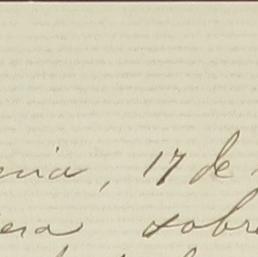 nia, 17 de
era sobre